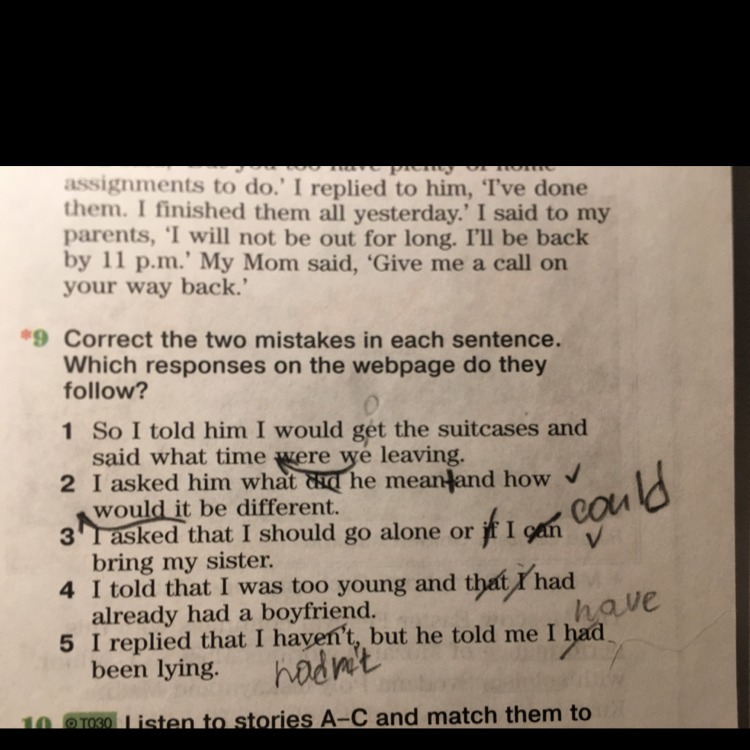 assignments to do.' I replied to him, 'I've done
them. I finished them all yesterday.' I said to my
parents, 'I will not be out for long. I'll be back
by 11 p.m.' My Mom said, 'Give me a call on
your way back.'
*9 Correct the two mistakes in each sentence.
Which responses on the webpage do they
follow?
1 So I told him I would get the suitcases and
said what time were we leaving.
2 I asked him what did he meant and how
would it be different.
could
3 I asked that I should go alone or if I can
bring my sister.
4 I told that I was too young and that I had
already had a boyfriend.
have
5 I replied that I haven't, but he told me I had
been lying.
hadn't
10 T030 Listen to stories A–C and match them to